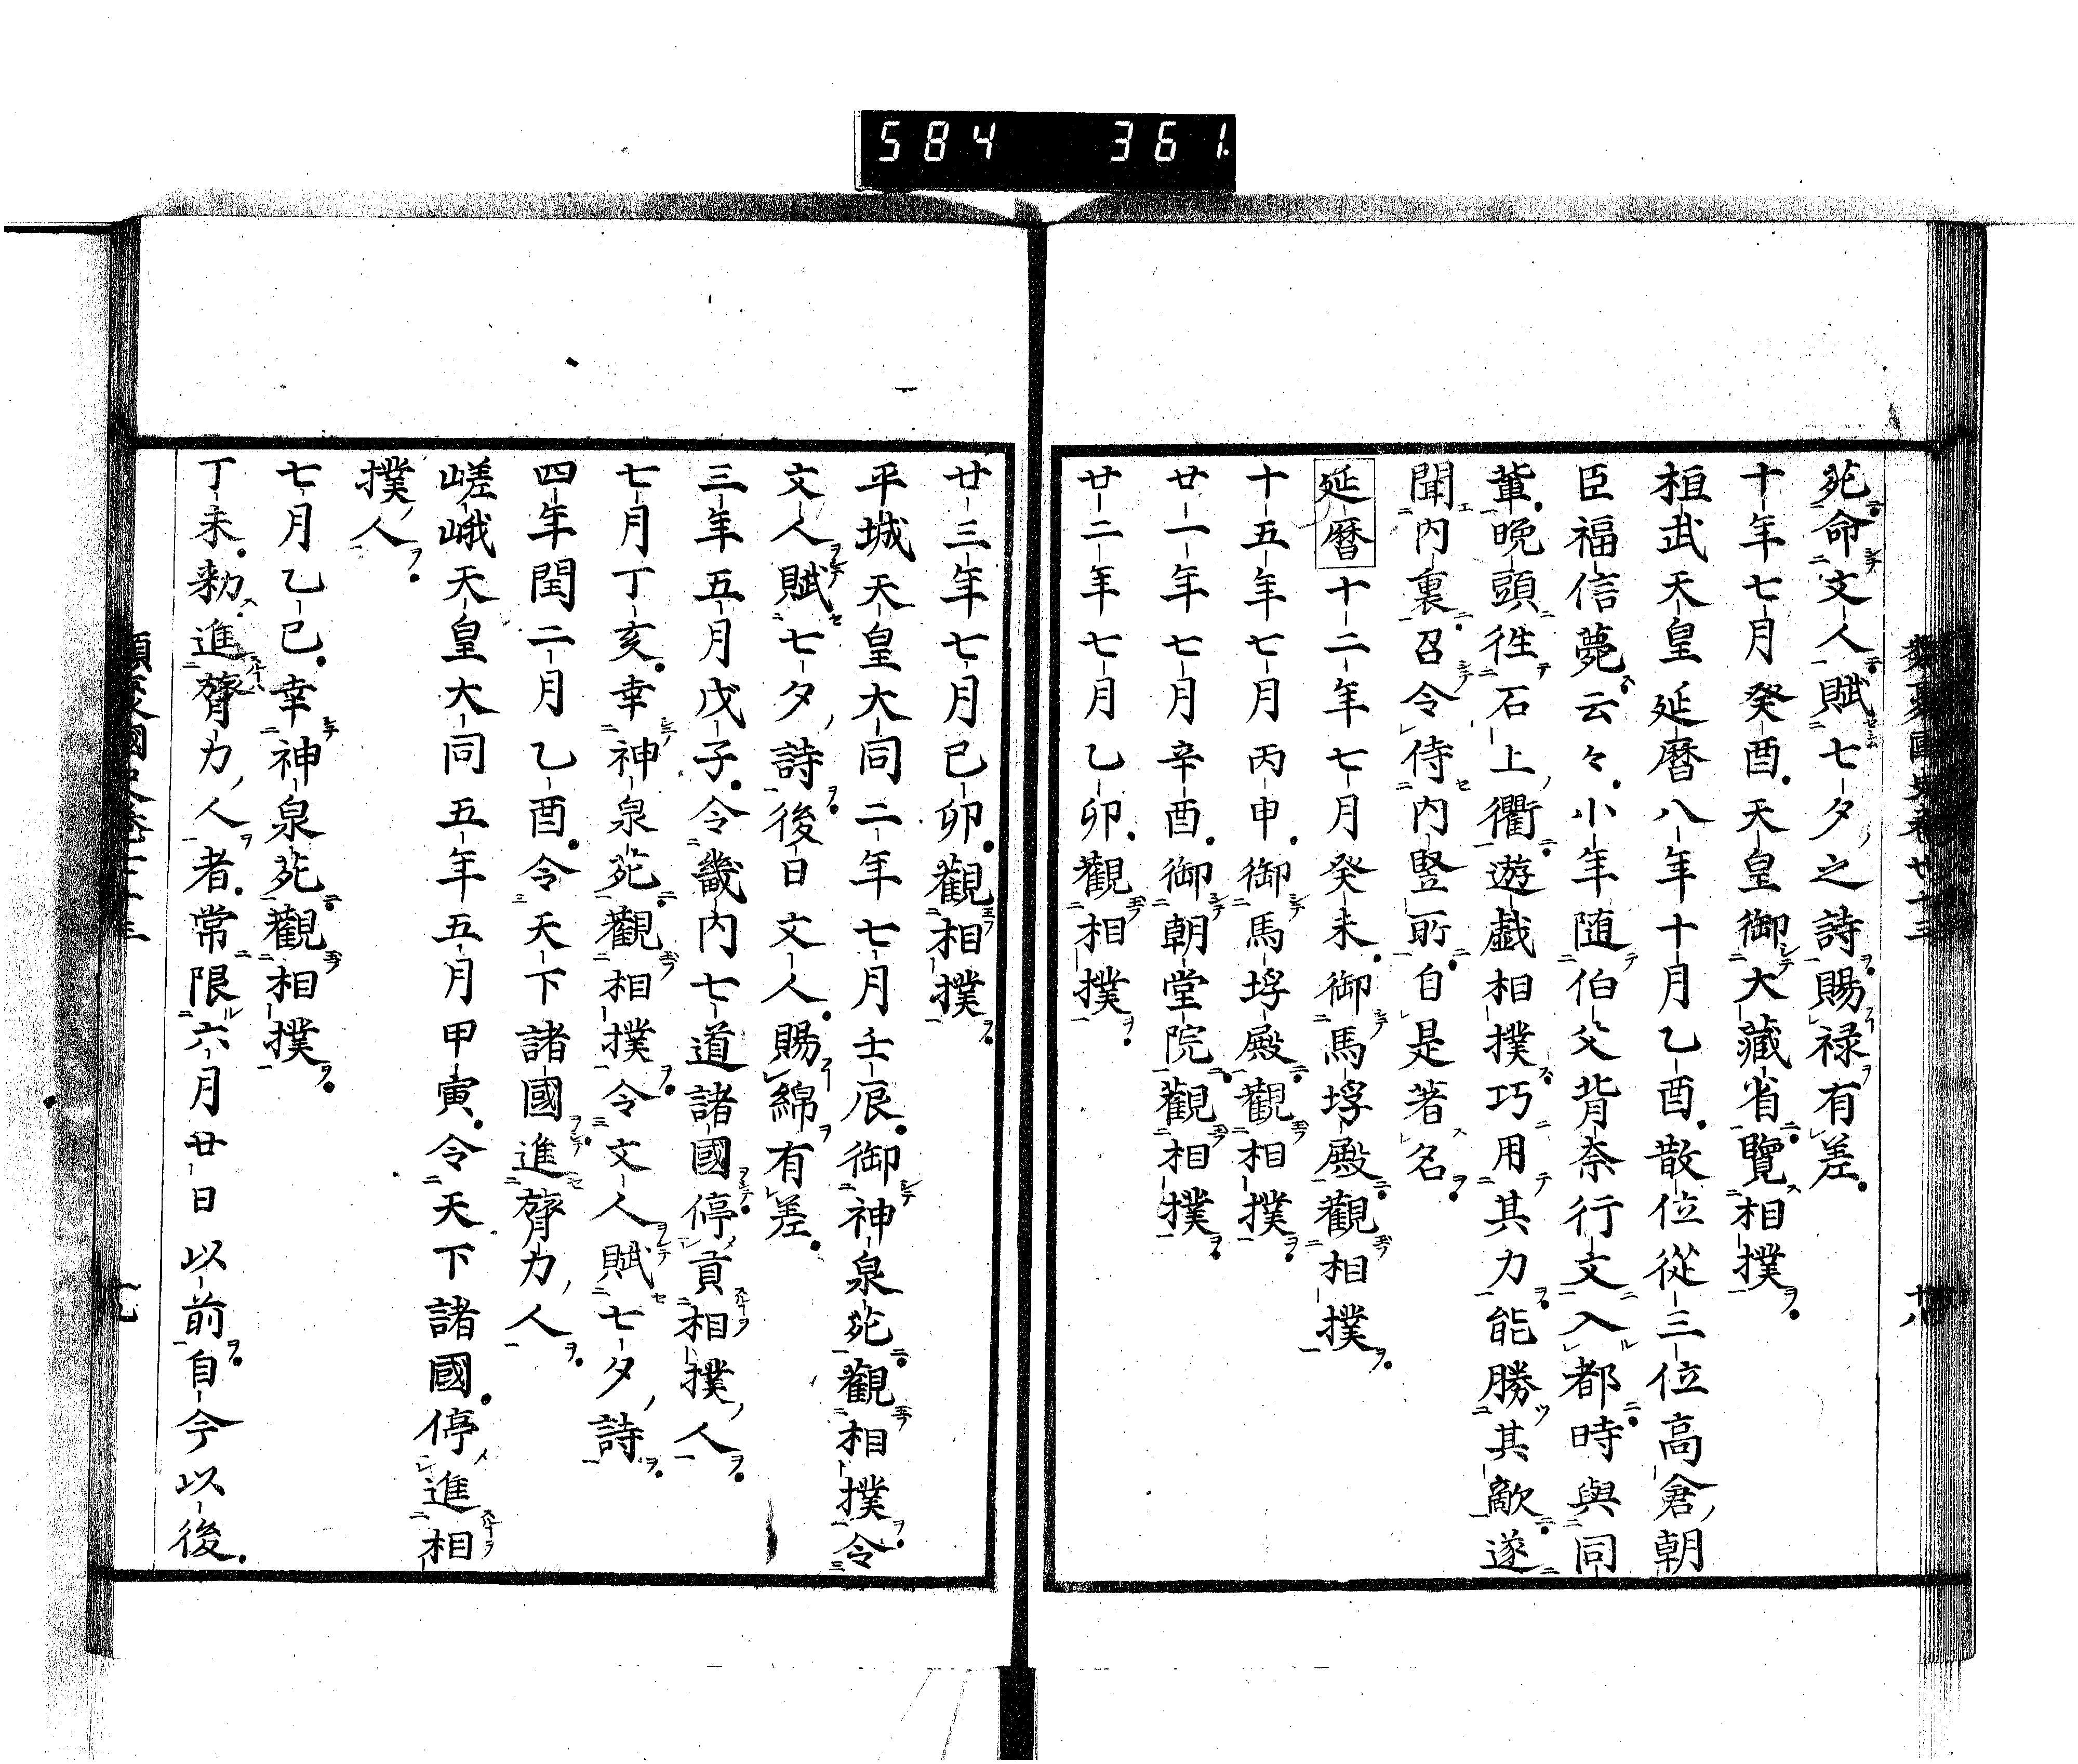 584 361
苑命文人賦七夕之詩賜禄有差
十年七月癸酉天皇御大藏省覽相撲
桓武天皇延暦八年十月乙酉散位從三位高倉朝
臣福信薨云々小年随伯父背奈行文入都時與同
輩晩頭徃石上衢遊戯相撲巧用其力能勝其敵遂
聞内裏召令侍内竪所自是著名
延暦十二年七月癸未御馬埒殿觀相撲
十五年七月丙申御馬埒殿觀相撲
廿一年七月辛酉御朝堂院觀相撲
廿二年七月乙卯觀相撲
廿三年七月己卯觀相撲
平城天皇大同二年七月壬辰御神泉苑觀相撲令
文人賦七夕詩後日文人賜綿有差
三年五月戊子令畿内七道諸國停貢相撲人
七月丁亥幸神泉苑觀相撲令文人賦七夕詩
四年閏二月乙酉令天下諸國進膂力人
嵯峨天皇大同五年五月甲寅令天下諸國停進相
撲人
七月乙巳幸神泉苑觀相撲
丁未勅進膂力人者常限六月廿日以前自今以後